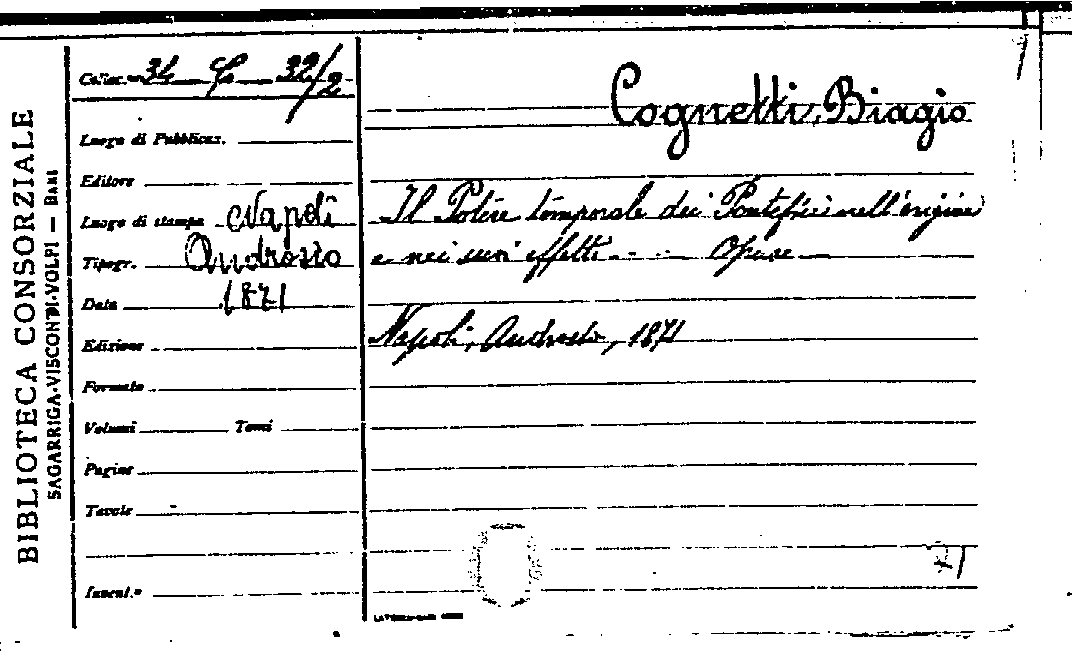 BIBLIOTECA CONSORZIALE
SAGARRIGA-VISCONTI-VOLPI — BARI
Colloc.ne 34 32/2
Luogo di Pubblicaz.
Editore
Luogo di stampa Napoli
Tipogr. Androsio
Data 1871
Edizione
Formato
Volumi Tomi
Pagine
Tavole
Invent.o
Cognetti, Biagio
Il Potere temporale dei Pontefici nell'origine
e nei suoi effetti - - - - Opusc
Napoli, Androsio, 1871